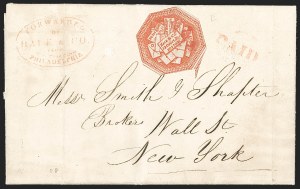 FORWARDED
PHILADELPHIA
PAID
Messrs Smith & Shapter
Brokers Wall St
New York